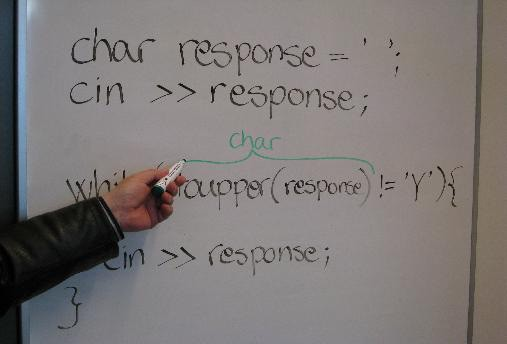 char response = ' ';
cin >> response;
char
while(toupper(response) != 'Y'){
cin >> response;
}